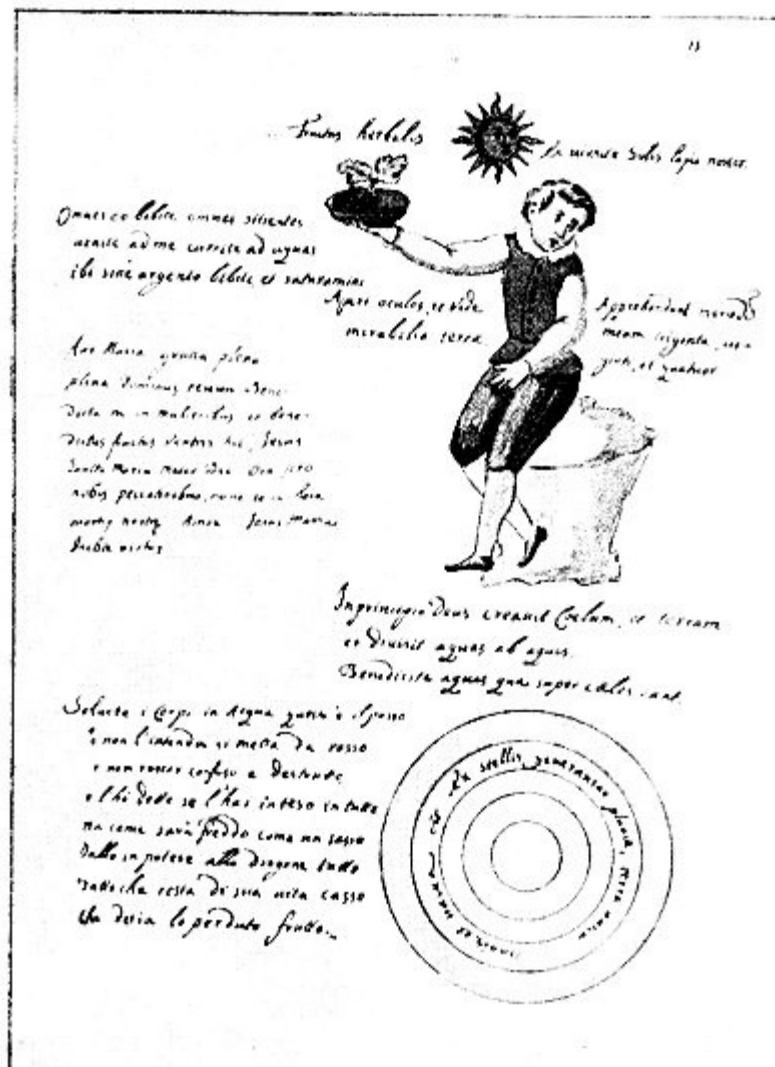 13
Fructus herbalis
Ex Solis lapis noster
Omnes bibite omnes sitientes
venite ad me currite ad aquas
ibi sine argento bibite et saturamini
Aperi oculos, et vide
mirabilia terra
Apprehendent
meam triginta
et quatuor
Ave Maria gratia plena
plena Dominus tecum Bene
dicta in mulieribus et bene
dictus fructus ventris tui, Jesus
Sancta Maria Mater Dei Ora pro
nobis peccatoribus, nunc et in hora
mortis nostrę Amen Jesus Maria
In principio Deus creavit Coelum, et terram
et divisit aquas ab aquis.
Benedicite aquas quae super cęlos sunt
Solvete i Corpi in Acqua
non l'intende si metta da
e non confuso e destrutto
se l'hai inteso in tutto
ma come sarà freddo come un sasso
Dallo in potere allo dragone tutto
che resta di sua vita casso
lo perduto frutto
Ex stellis, generantur pluvia